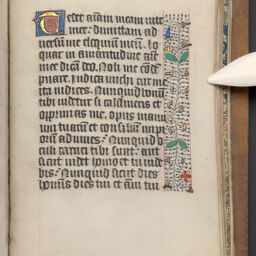 Tedet aīam meam vite
mee: dimittam ad
versū me eloquiū meū. lo
quar in amaritudine aīe
mee dicā deo. Noli me cōdē
pnare. Indica michi cur me
ita iudices. Nunquid bonū
tibi videtur si calumpnieris et
opprimas me. opus manu
um tuarū et consiliū impi
orū adiuves. Nunquid o
culi carnei tibi sunt. aut
sicut videt homo et tu vide
bis. Nunquid sicut dies
hominis dies tui et anni tui